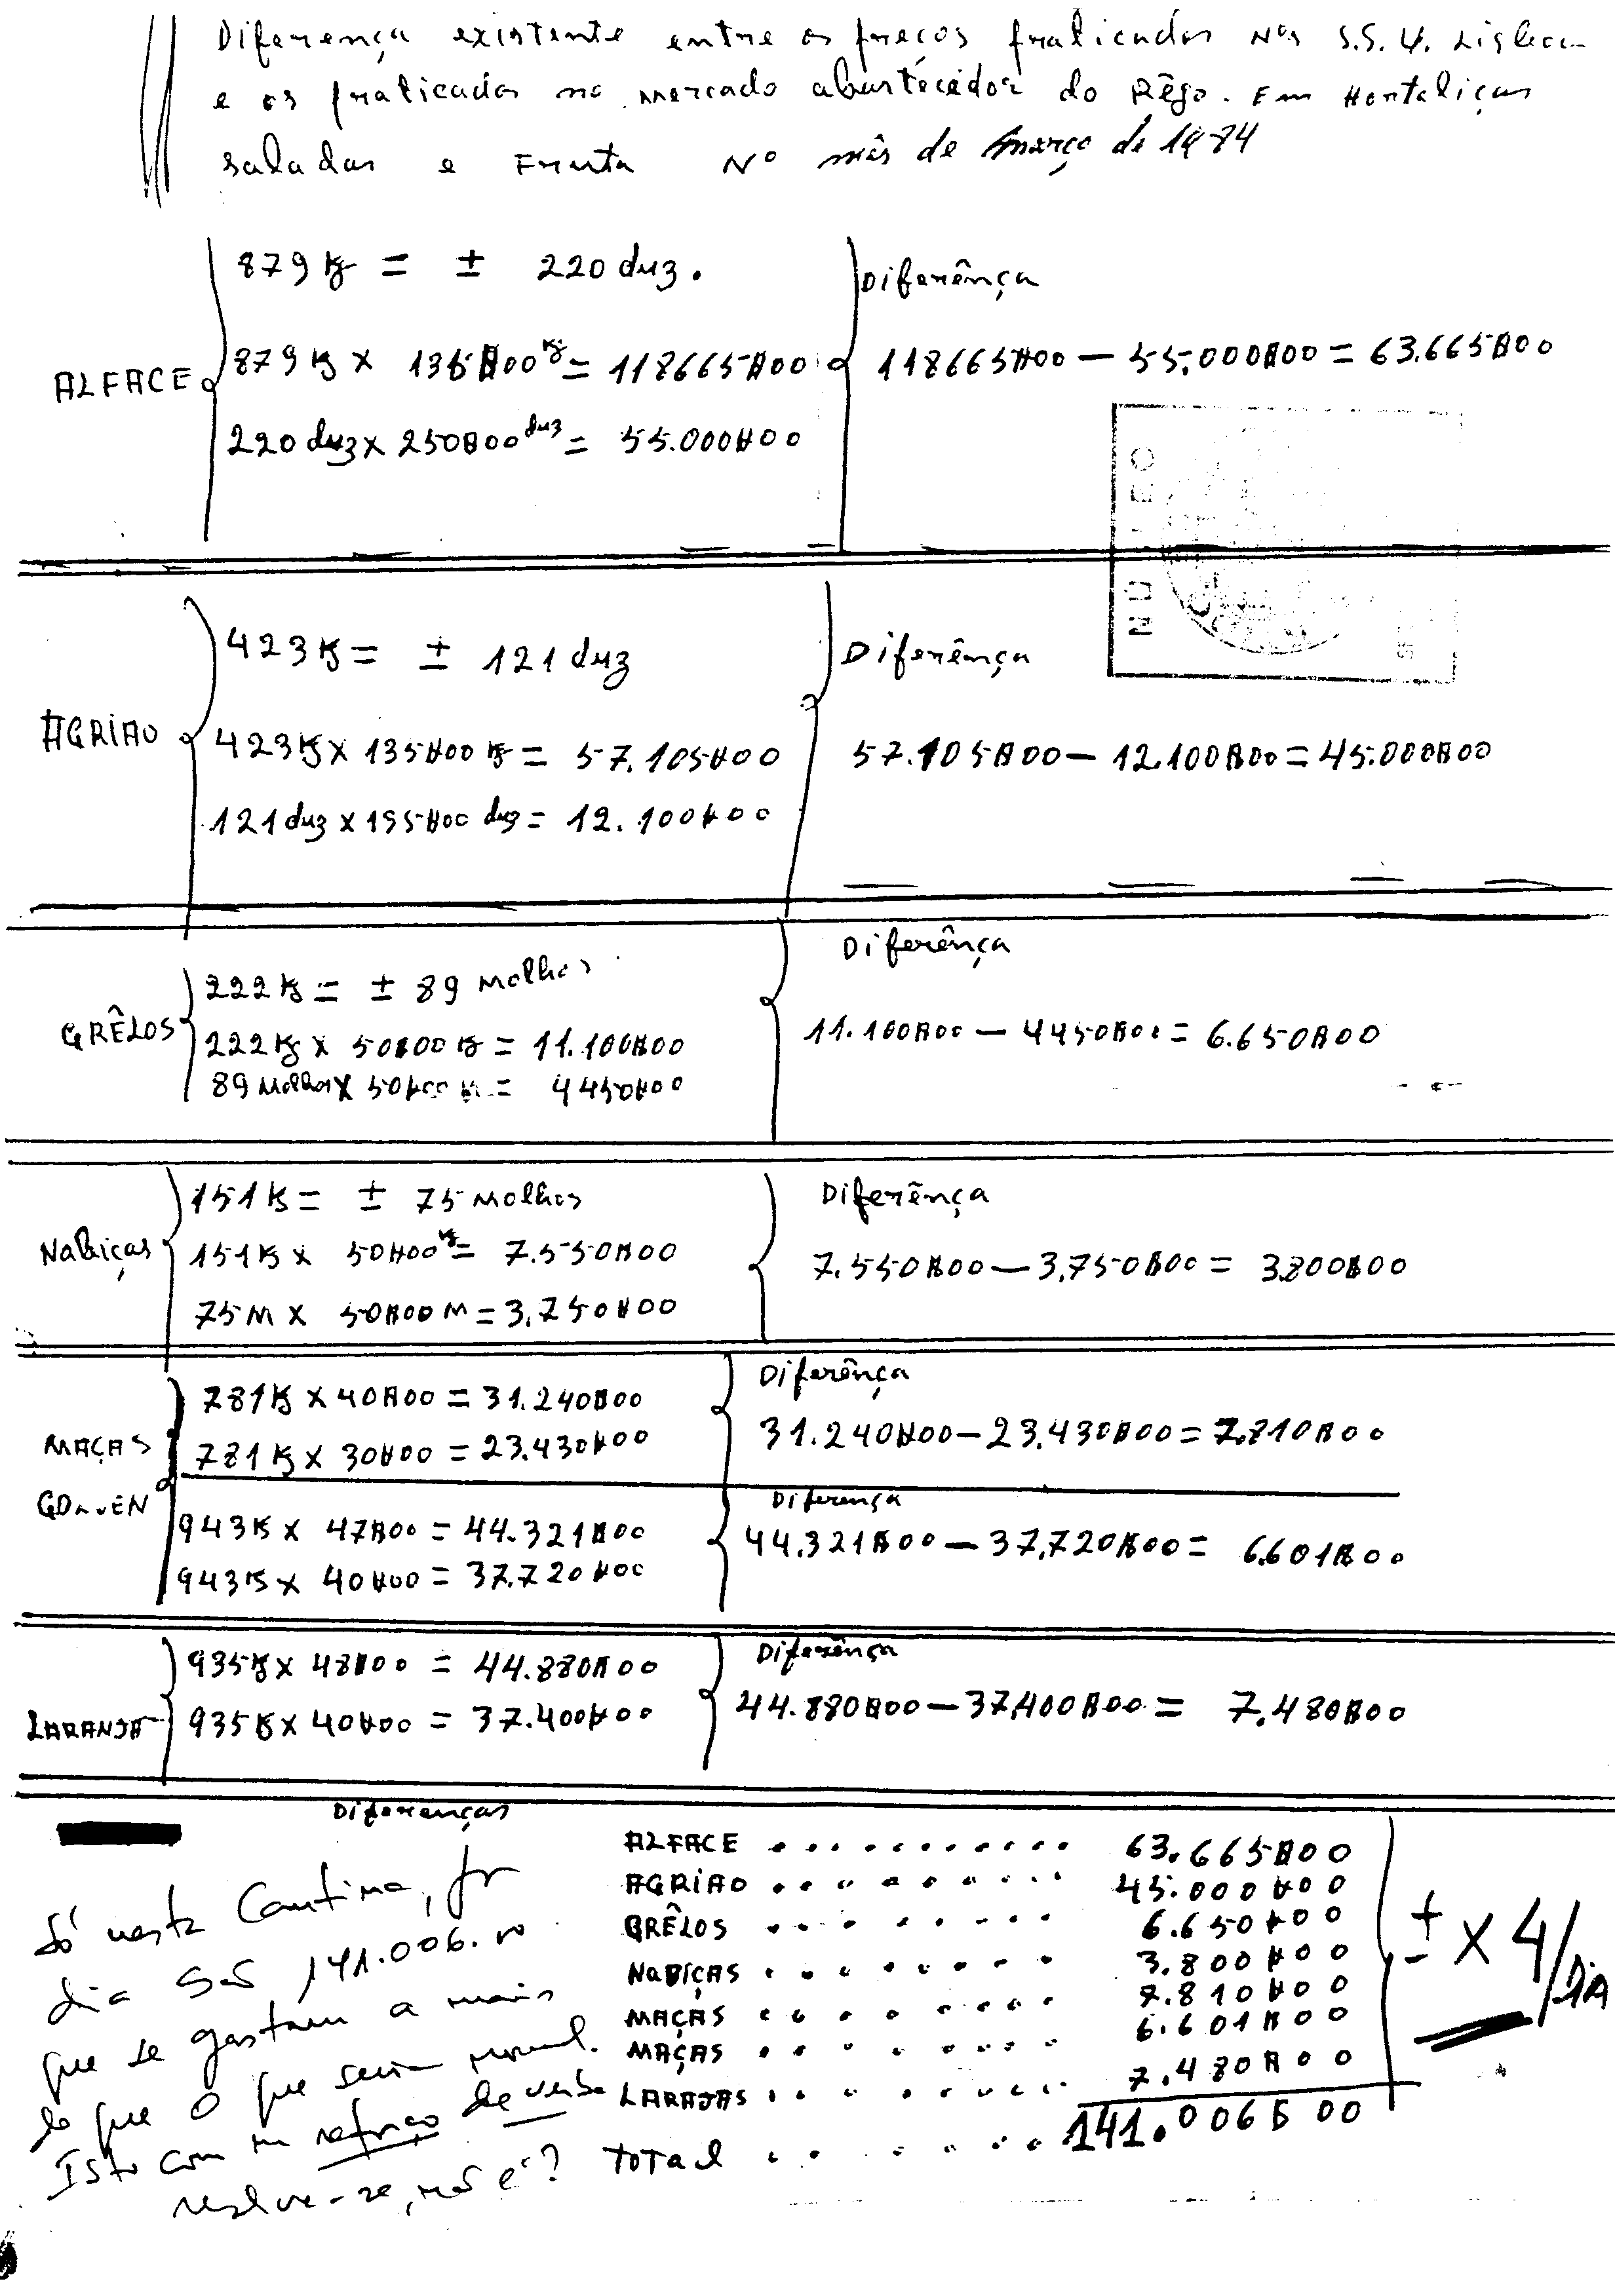 Diferença existente entre os preços praticados nos S.S.U. Lisboa
e os praticados no mercado abastecedor do Rêgo. Em Hortaliças
saladas e Fruta No mês de março de 1974
879 kg = ± 220 duz.
Diferênça
ALFACE
879 kg x 135$00 kg = 118665$00
118665$00 — 55.000$00 = 63.665$00
220 duz x 250$00 duz = 55.000$00
423 K = ± 121 duz
Diferênça
AGRIAO
423 K x 135$00 K = 57.105$00
57.105$00 — 12.100$00 = 45.000$00
121 duz x 155$00 duz = 12.100$00
Diferênça
222 K = ± 89 Molhos
GRÊLOS
222 K x 50$00 K = 11.100$00
11.100$00 — 4450$00 = 6.650$00
89 Molhos x 50$00 = 4450$00
151 K = ± 75 Molhos
Diferênça
Nabiças
151 K x 50$00 K = 7.550$00
7.550$00 — 3.750$00 = 3.800$00
75 M x 50$00 M = 3.750$00
Diferênça
781 K x 40$00 = 31.240$00
MAÇAS
781 K x 30$00 = 23.430$00
31.240$00 — 23.430$00 = 7.810$00
Diferença
943 K x 47$00 = 44.321$00
44.321$00 — 37.720$00 = 6.601$00
943 K x 40$00 = 37.720$00
Diferênça
935 K x 48$00 = 44.880$00
LARANJA
935 K x 40$00 = 37.400$00
44.880$00 — 37.400$00 = 7.480$00
Diferenças
ALFACE .......... 63.665$00
AGRIAO .......... 45.000$00
GRÊLOS .......... 6.650$00
NaBIÇAS .......... 3.800$00
MAÇAS .......... 7.810$00
MAÇAS .......... 6.601$00
LARAJAS .......... 7.480$00
Total .......... 141.006$00
± x 4/DIA
Só nesta Cantina, por
dia são 141.006.00
que se gastam a mais
do que o que seria normal.
Isto com um reforço de verba
resolve-se, não é?